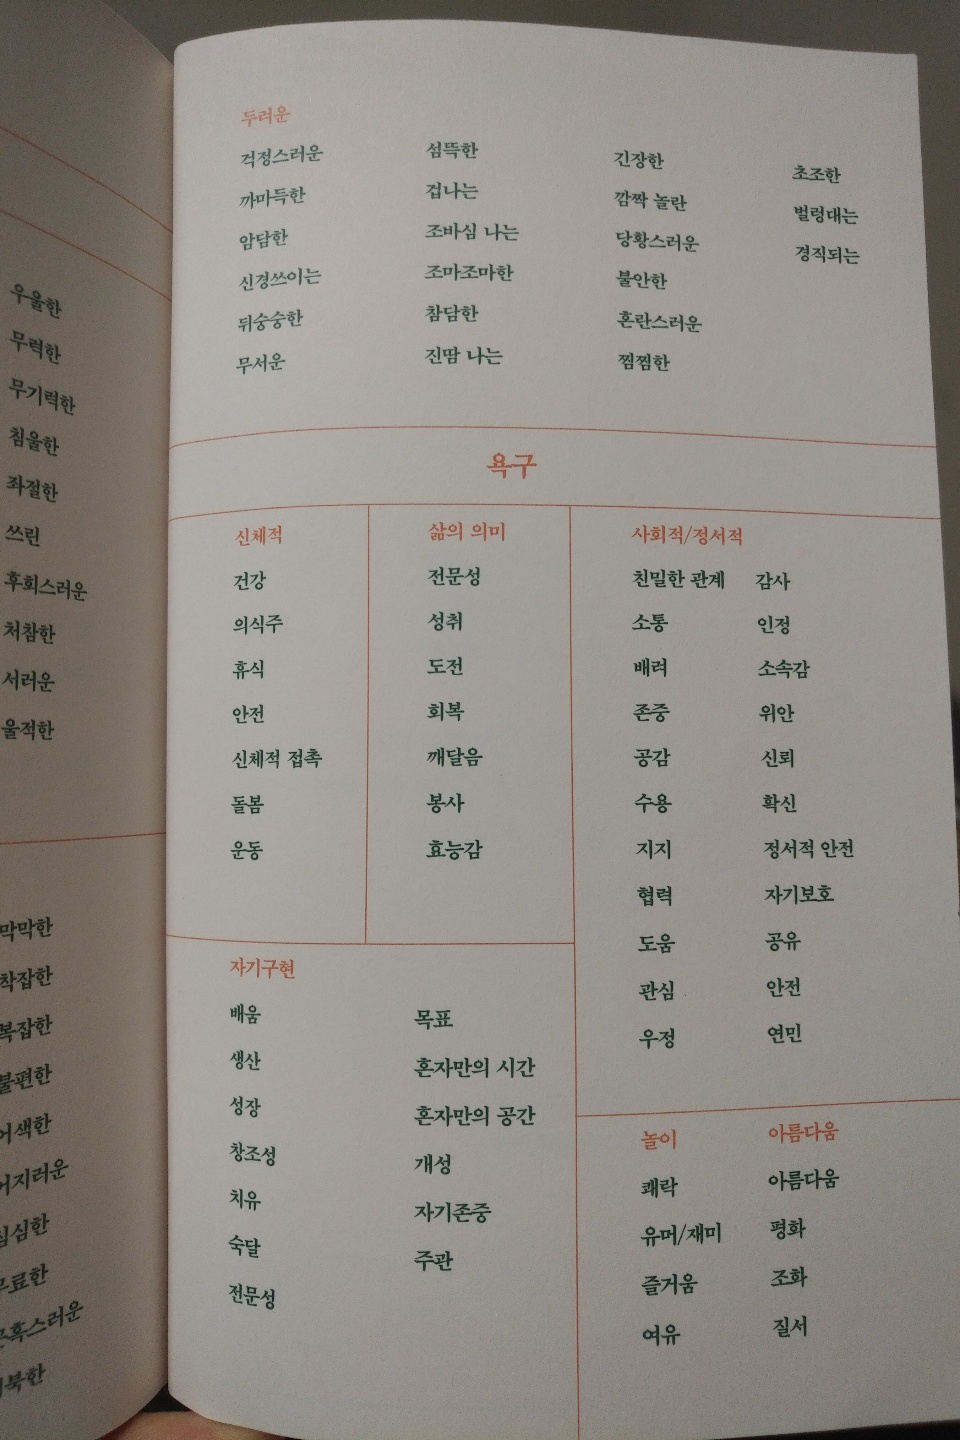 우울한
무력한
무기력한
침울한
좌절한
쓰린
후회스러운
처참한
서러운
울적한
막막한
착잡한
복잡한
불편한
어색한
어지러운
심심한
무료한
곤혹스러운
거북한
두려운
걱정스러운
까마득한
암담한
신경쓰이는
뒤숭숭한
무서운
섬뜩한
겁나는
조바심 나는
조마조마한
참담한
진땀 나는
긴장한
깜짝 놀란
당황스러운
불안한
혼란스러운
찜찜한
초조한
벌렁대는
경직되는
욕구
신체적
건강
의식주
휴식
안전
신체적 접촉
돌봄
운동
삶의 의미
전문성
성취
도전
회복
깨달음
봉사
효능감
사회적/정서적
친밀한 관계
소통
배려
존중
공감
수용
지지
협력
도움
관심
우정
감사
인정
소속감
위안
신뢰
확신
정서적 안전
자기보호
공유
안전
연민
자기구현
배움
생산
성장
창조성
치유
숙달
전문성
목표
혼자만의 시간
혼자만의 공간
개성
자기존중
주관
놀이
쾌락
유머/재미
즐거움
여유
아름다움
아름다움
평화
조화
질서